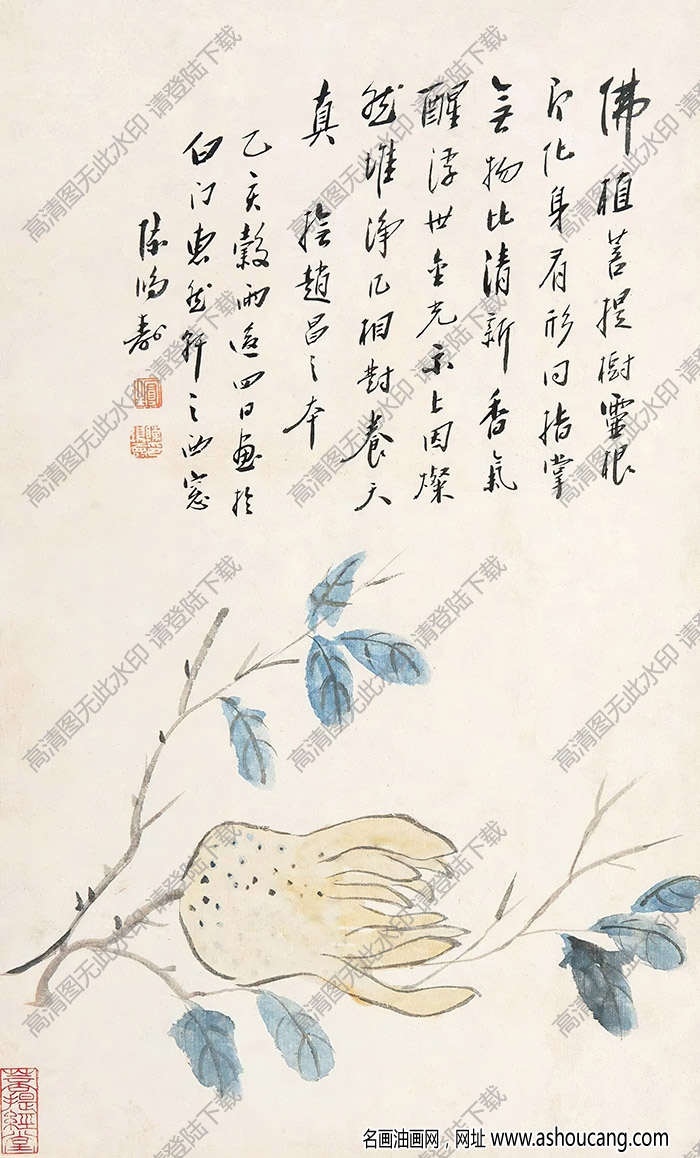 佛植菩提樹靈根
化身有形同指掌
無物比清新香氣
醒浮世金光示上因燦
然堆淨几相對養天
真 趙昌之本
乙亥穀雨後四日畫於
白門惠然軒之西窓
陳鴻壽
菩提經堂
高清图无此水印 请登陆下载
名画油画网，网址 www.ashoucang.com